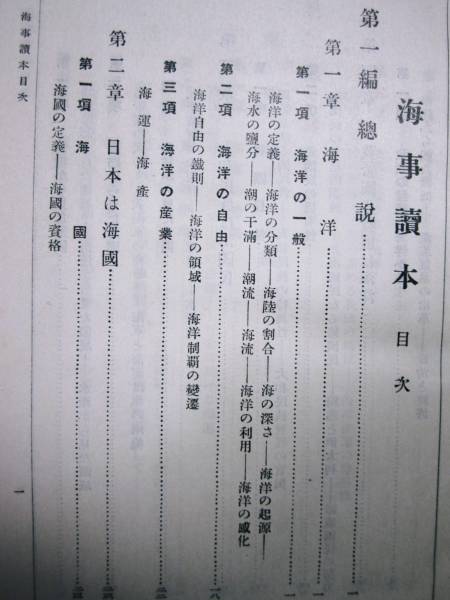 海事讀本 目次
第一編 總說……一
第一章 海洋……一
第一項 海洋の一般……一
海洋の定義——海洋の分類——海陸の割合——海の深さ——海洋の起源——
海水の鹽分——潮の干滿——潮流——海流——海洋の利用——海洋の感化
第二項 海洋の自由……一八
海洋自由の鐵則——海洋の領域——海洋制覇の變遷
第三項 海洋の産業……
海運——海産
第二章 日本は海國……
第一項 海國……
海國の定義——海國の資格
海事讀本目次
一